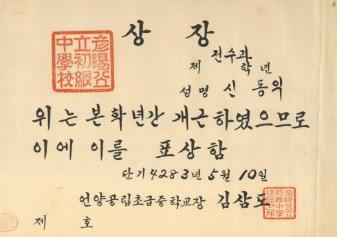 彦陽公
立初級
中學校
상장
전수과
제 학년
성명 신동익
위는 본학년간 개근하였으므로
이에 이를 표상함
단기 4283년 5월 10일
언양공립초급중학교장 김삼도
제 호